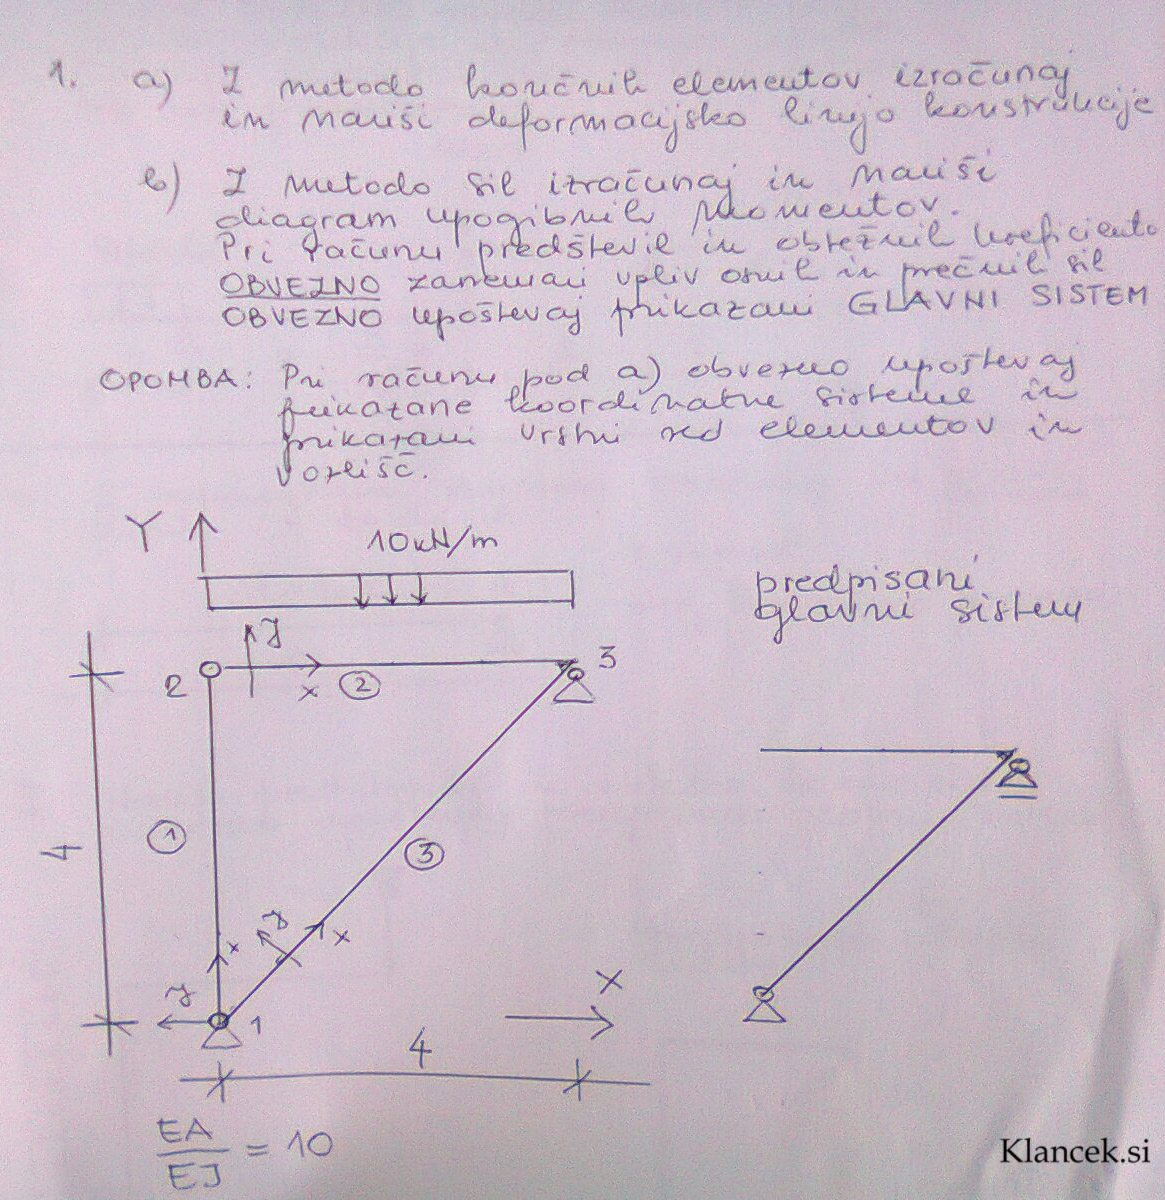 1. a) Z metodo končnih elementov izračunaj
in nariši deformacijsko linijo konstrukcije
b) Z metodo sil izračunaj in nariši
diagram upogibnih momentov.
Pri računu predštevil in obtežnih koeficientov
OBVEZNO zanemari vpliv osnih in prečnih sil
OBVEZNO upoštevaj prikazani GLAVNI SISTEM
OPOMBA: Pri računu pod a) obvezno upoštevaj
prikazane koordinatne sisteme in
prikazani vrstni red elementov in
vozlišč.
Y
10 kN/m
predpisani
glavni sistem
y
3
2
x
2
4
1
3
y
x
x
y
1
X
4
EA
EJ
= 10
Klancek.si